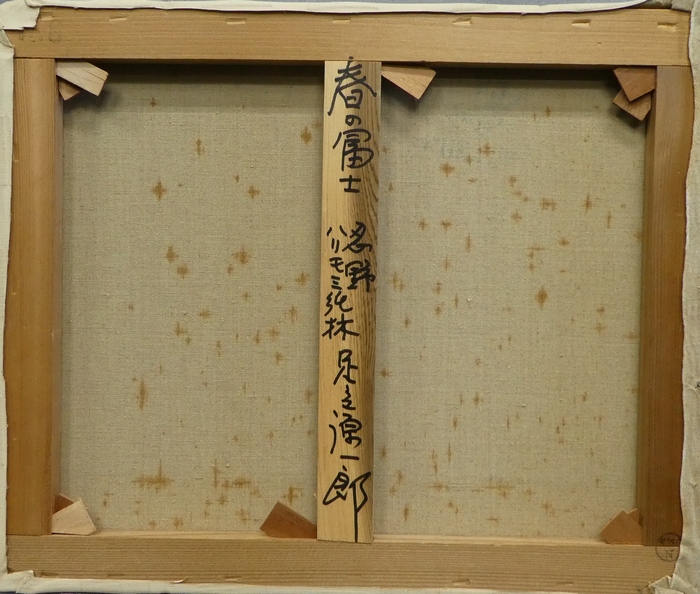 春の富士
忍野
ハリモミ純林
足立源一郎